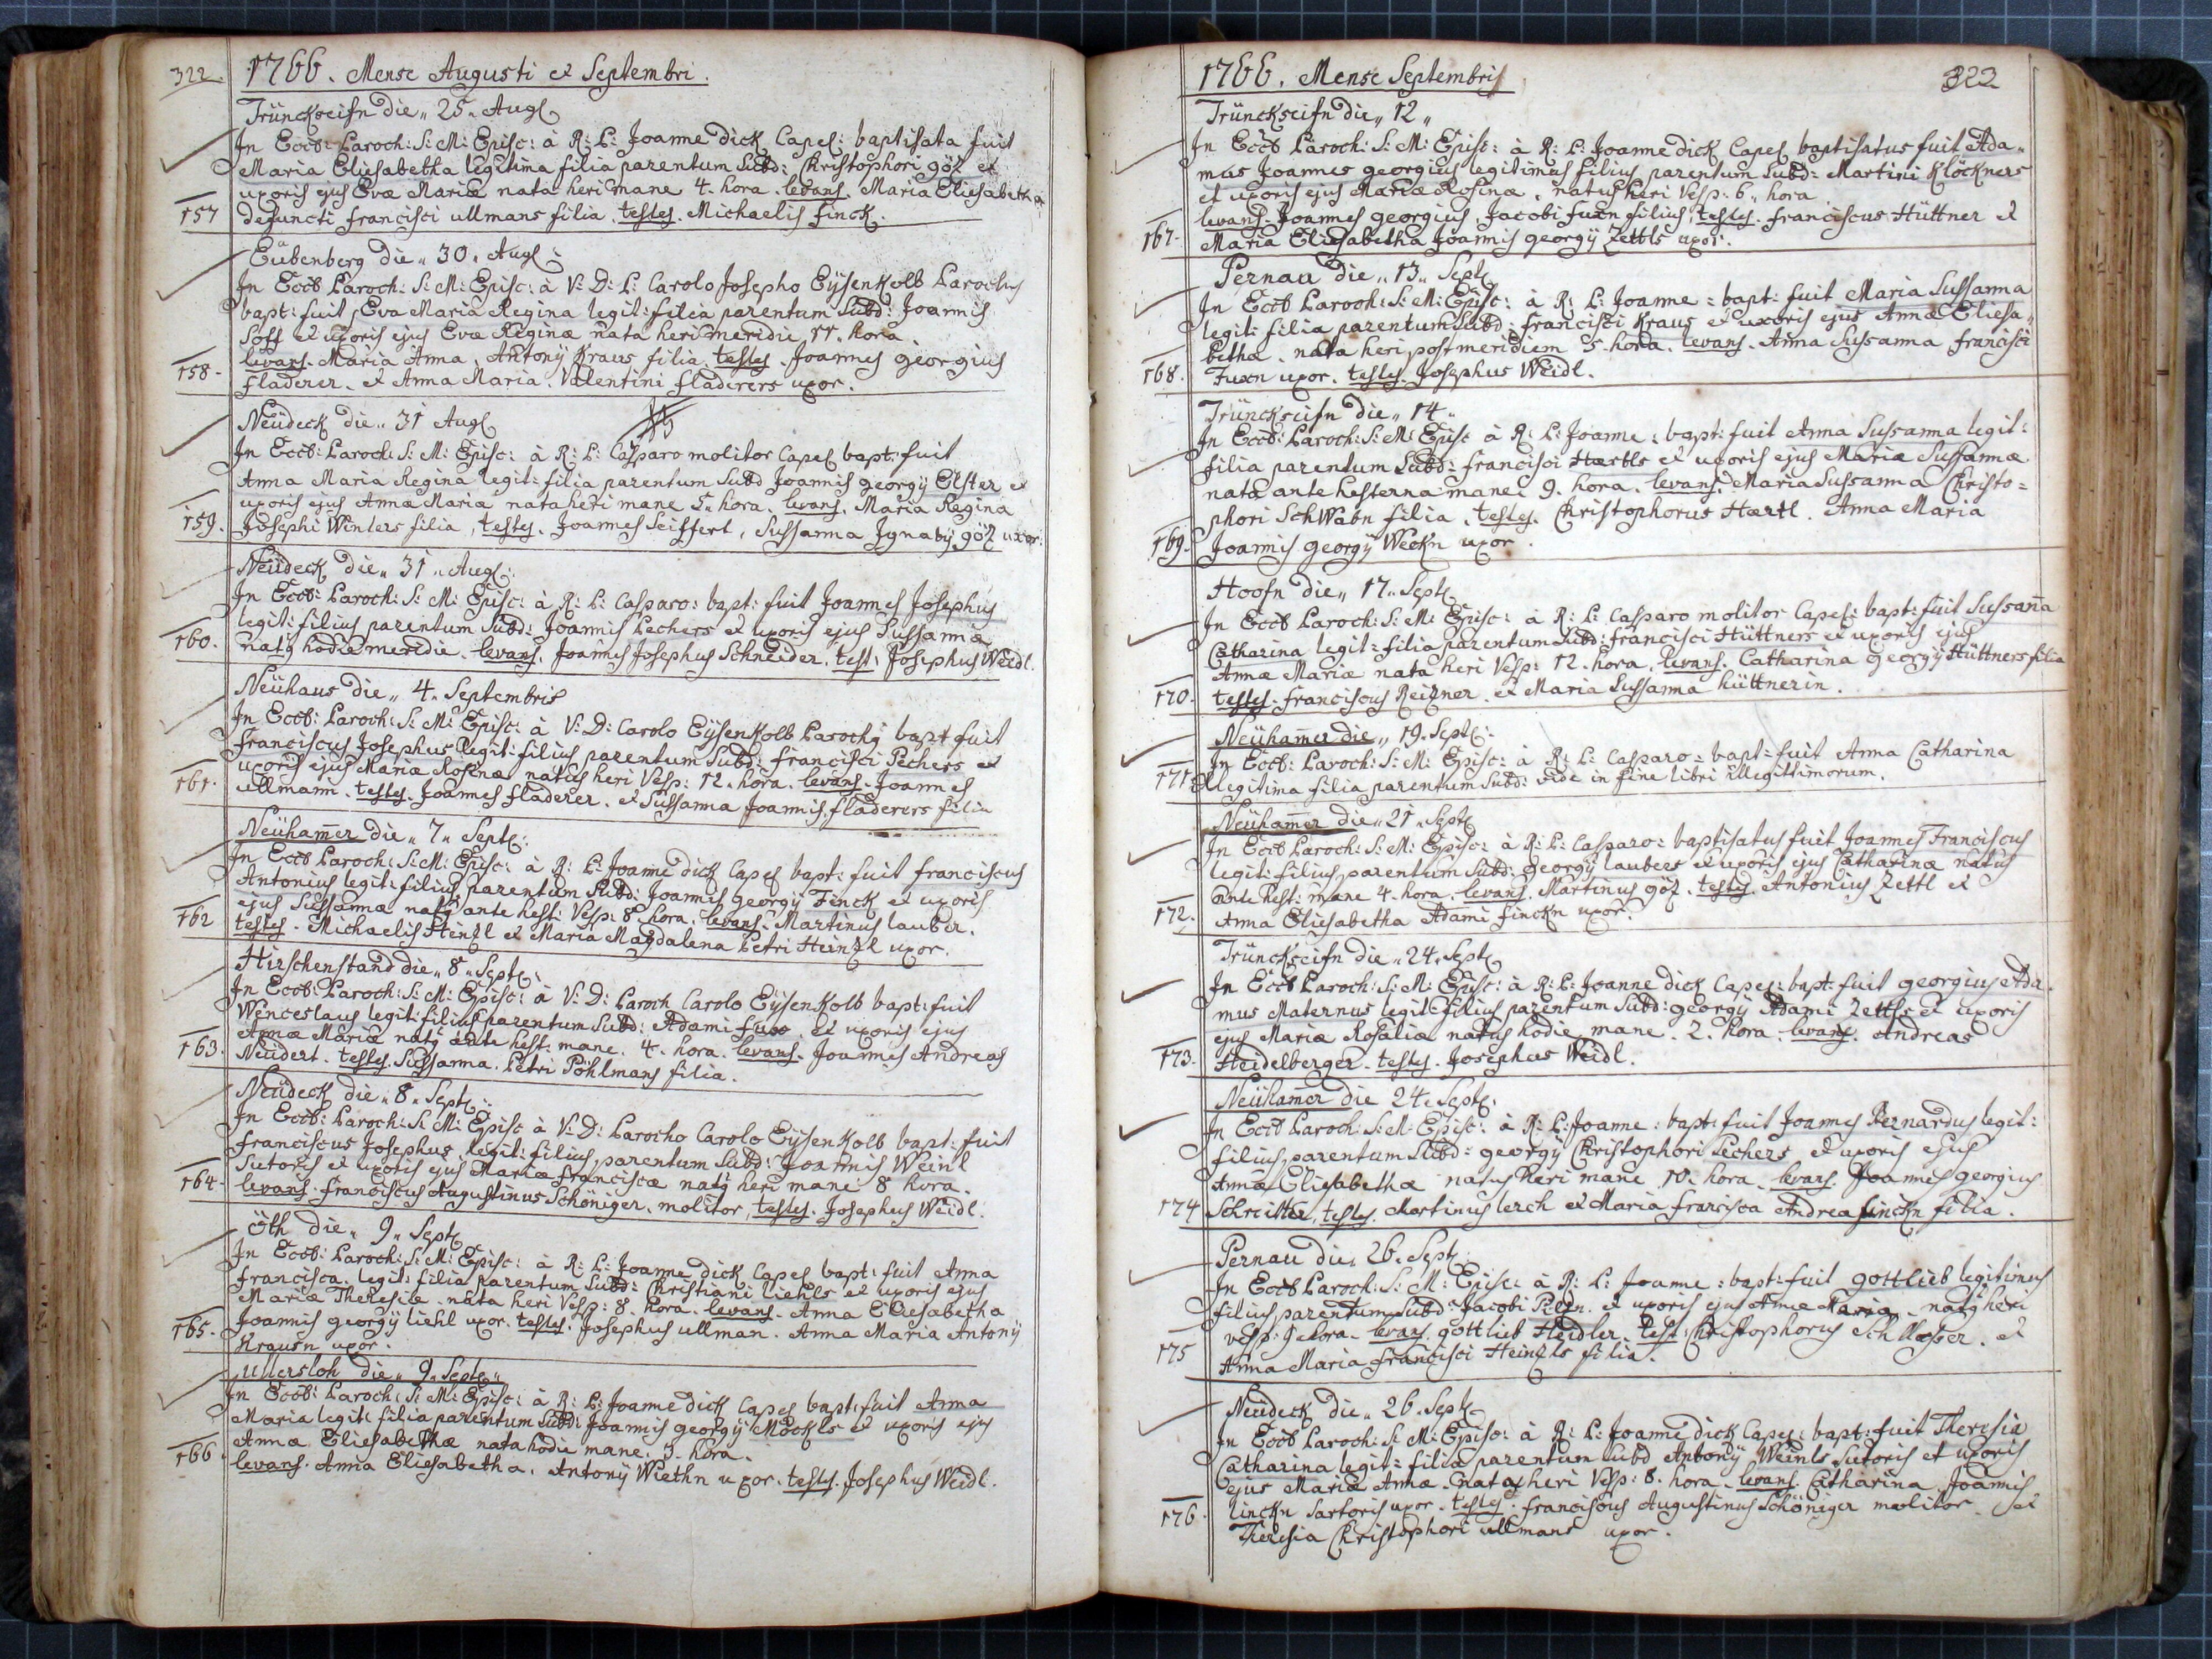 322.
1766. Mense Augusti et Septembri.
Trünckseifn die „ 25 „ Aug:
In Eccl: Paroch: S: M: Episc: à R: P: Joanne dick Capel: baptisata fuit
Maria Eliesabetha legitima filia parentum Subd: Christophori göz et
uxoris ejus Evæ Mariæ nata heri mane 4. hora. levans. Maria Eliesabetha
157 defuncti francisci ullmans filia, testes. Michaelis finck.
Eübenberg die „ 30 „ Aug:
In Eccl: Paroch: S: M: Episc: à V: D: P: Carolo Josepho EysenKolb Parochus
bapt: fuit Eva Maria Regina legit: filia parentum Subd: Joannis
Soff et uxoris ejus Evæ Reginæ nata heri meridie 11. hora.
levans. Maria Anna, Antony Kraus filia. testes. Joannes georgius
158. fladerer. et Anna Maria. Valentini fladerers uxor.
Neüdeck die „ 31 Aug:
In Eccl: Paroch: S: M: Episc: à R: P: Casparo molitor Capel: bapt: fuit
Anna Maria Regina legit: filia parentum Subd Joannis georgy Elster et
uxoris ejus Annæ Mariæ nata heri mane 5. hora. levans. Maria Regina
159. Josephi Winters filia, testes. Joannes Seiffert, Sussanna Ignaty göz uxor.
Neüdeck die „ 31 „ Aug:
In Eccl: Paroch: S: M: Episc: à R: P: Casparo: bapt: fuit Joannes Josephus
legit: filius parentum Subd: Joannis Pechers et uxoris ejus Sussannæ
160. natus hodie meridie. levans. Joannes Josephus Schneider. test: Josephus Weidl.
Neühaus die „ 4. Septembris
In Eccl: Paroch: S: M: Episc: à V: D: Carolo EysenKolb Parochus bapt fuit
franciscus Josephus legit: filius parentum Subd: francisci Pechers et
uxoris ejus Mariæ Rosinæ natus heri Vesp: 12. hora. levans. Joannes
161. ullmann. testes. Joannes fladerer. et Sussanna Joannis fladerers filia
Neühamer die „ 7 „ Sept:
In Eccl Paroch: S: M: Episc: à R: P: Joanne dick Capel bapt: fuit franciscus
Antonius legit: filius parentum Subd: Joannis georgy Finck et uxoris
ejus Sussannæ natus ante hest: Vesp: 8 hora. levans. Martinus lauber.
162 testes. Michaelis Heinzl et Maria Magdalena Petri Heinzl uxor.
Hirschenstand die „ 8 „ Sept:
In Eccl: Paroch: S: M: Episc: à V: D: Paroch Carolo EysenKolb bapt: fuit
Wenceslaus legit: filius parentum Subd: Adami fuxo et uxoris ejus
Annæ Mariæ natus ante hest: mane. 4. hora. levans. Joannes Andreas
163. Neüdert. testes. Sussanna. Petri Pöhlmans filia.
Neüdeck die „ 8 „ Sept:
In Eccl: Paroch: S: M: Episc à V: D: Parocho Carolo EysenKolb bapt: fuit
franciscus Josephus legit: filius parentum Subd: Joannis Weinl
Sutoris et uxoris ejus Mariæ franciscæ natus heri mane 8 hora.
164. levans. franciscus Augustinus Schöniger. molitor, testes. Josephus Weidl.
Öth die „ 9 „ Sept:
In Eccl: Paroch: S: M: Episc: à R: P: Joanne dick Capel bapt: fuit Anna
francisca. legit: filia parentum Subd: Christiani Liehls et uxoris ejus
Mariæ Theresiæ. nata heri Vesp: 8. hora. levans. Anna Eliesabetha
165. Joannis georgy liehl uxor. testes. Josephus ullman. Anna Maria Antony
Krausn uxor.
Ullersloh die „ 9 „ Sept:
In Eccl: Paroch: S: M: Episc: à R: P: Joanne dick Capel bapt: fuit Anna
Maria legit: filia parentum Subd: Joannis georgy Möckls et uxoris ejus
Annæ Eliesabethæ nata hodie mane. 3. hora.
166 levans. Anna Eliesabetha. Antony Wiethn uxor. testes. Josephus Weidl.
1766. Mense Septembris
322
Trünckseifn die „ 12 „
In Eccl Paroch: S: M: Episc: à R: P: Joanne dick Capel baptisatus fuit Ada„
mus Joannes georgius legitimus filius parentum Subd: Martini Klöckners
et uxoris ejus Mariæ Rosinæ. natus heri Vesp: 6. hora.
levans. Joannes georgius, Jacobi fuxn filius, testes. franciscus Hüttner et
167. Maria Eliesabetha Joannis georgy Zettls uxor.
Pernau die „ 13 „ Sept
In Eccl Paroch: S: M: Episc: à R: P: Joanne: bapt: fuit Maria Sussanna
legit: filia parentum Subd: francisci Kraus et uxoris ejus Annæ Eliesa„
bethæ. nata heri post meridiem 5. hora. levans. Anna Sussanna francisci
168. Fuxn uxor. testes. Josephus Weidl.
Trünckseifn die „ 14 „
In Eccl: Paroch: S: M: Episc à R: P: Joanne: bapt: fuit Anna Sussanna legit:
filia parentum Subd: francisci Hærtls et uxoris ejus Mariæ Sussannæ
nata ante hesterna mane 9. hora. levans. Maria Sussanna Christo=
phori Schwabn filia. testes. Christophorus Hærtl. Anna Maria
169. Joannis georgy Weckn uxor.
Hoofn die „ 17 „ Sept
In Eccl Paroch: S: M: Episc: à R: P: Casparo molitor Capel: bapt: fuit Sussana
Catharina legit: filia parentum Subd: francisci Hüttners et uxoris ejus
Annæ Mariæ nata heri Vesp: 12. hora. levans. Catharina georgy Hüttners filia
170. testes. franciscus Reizner. et Maria Sussanna hüttnerin.
Neühamer die „ 19. Sept:
In Eccl: Paroch: S: M: Episc: à R: P: Casparo: bapt: fuit Anna Catharina
171. illegitima filia parentum Subd: vide in fine libri illegittimorum.
Neühamer die „ 21 „ Sept
In Eccl Paroch: S: M: Episc: à R: P: Casparo: baptisatus fuit Joannes Franciscus
legit: filius parentum Subd: georgy laubers et uxoris ejus Catharinæ natus
ante hest: mane 4. hora. levans. Martinus göz. testes. Antonius Zettl et
172. Anna Eliesabetha Adami finckn uxor.
Trünckseifn die „ 24. Sept
In Eccl Paroch: S: M: Episc: à R: P: Joanne dick Capel: bapt: fuit georgius Ada
mus Maternus legit: filius parentum Subd: georgy Adami Zettls et uxoris
ejus Mariæ Rosaliæ natus hodie mane. 2. hora. levans. Andreas
173. Heidelberger. testes. Josephus Weidl.
Neühamer die 24. Sept:
In Eccl Paroch: S: M: Episc: à R: P: Joanne: bapt: fuit Joannes Bernardus legit:
filius parentum Subd: georgy Christophori Pechers et uxoris ejus
Annæ Eliesabethæ natus heri mane 10. hora. levans. Joannes georgius
174 Schreitter, testes. Martinus lerch et Maria francisca Andrea finckn filia.
Pernau die 26. Sept:
In Eccl Paroch: S: M: Episc: à R: P: Joanne: bapt: fuit gottlieb legitimus
filius parentum Subd: Jacobi Pilzn. et uxoris ejus Annæ Mariæ. natus heri
vesp: 9 hora. levans. gottlieb Heidler. test: Christophorus Schlosser. et
175 Anna Maria francisci Heinzls filia.
Neüdeck die „ 26. Sept
In Eccl Paroch: S: M: Episc: à R: P: Joanne dick Capel: bapt: fuit Theresia
Catharina legit: filia parentum Subd Antony Weinls Sutoris et uxoris
ejus Mariæ Annæ. nata heri Vesp: 8. hora. levans. Catharina Joannis
176. linckn Sartoris uxor. testes. franciscus Augustinus Schöniger molitor et
Theresia Christophori ullmans uxor.